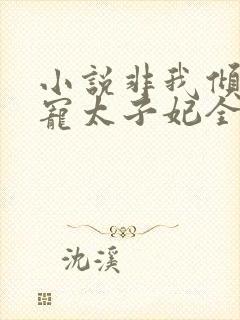 小說非我傾
寵太子妃全
沈溪